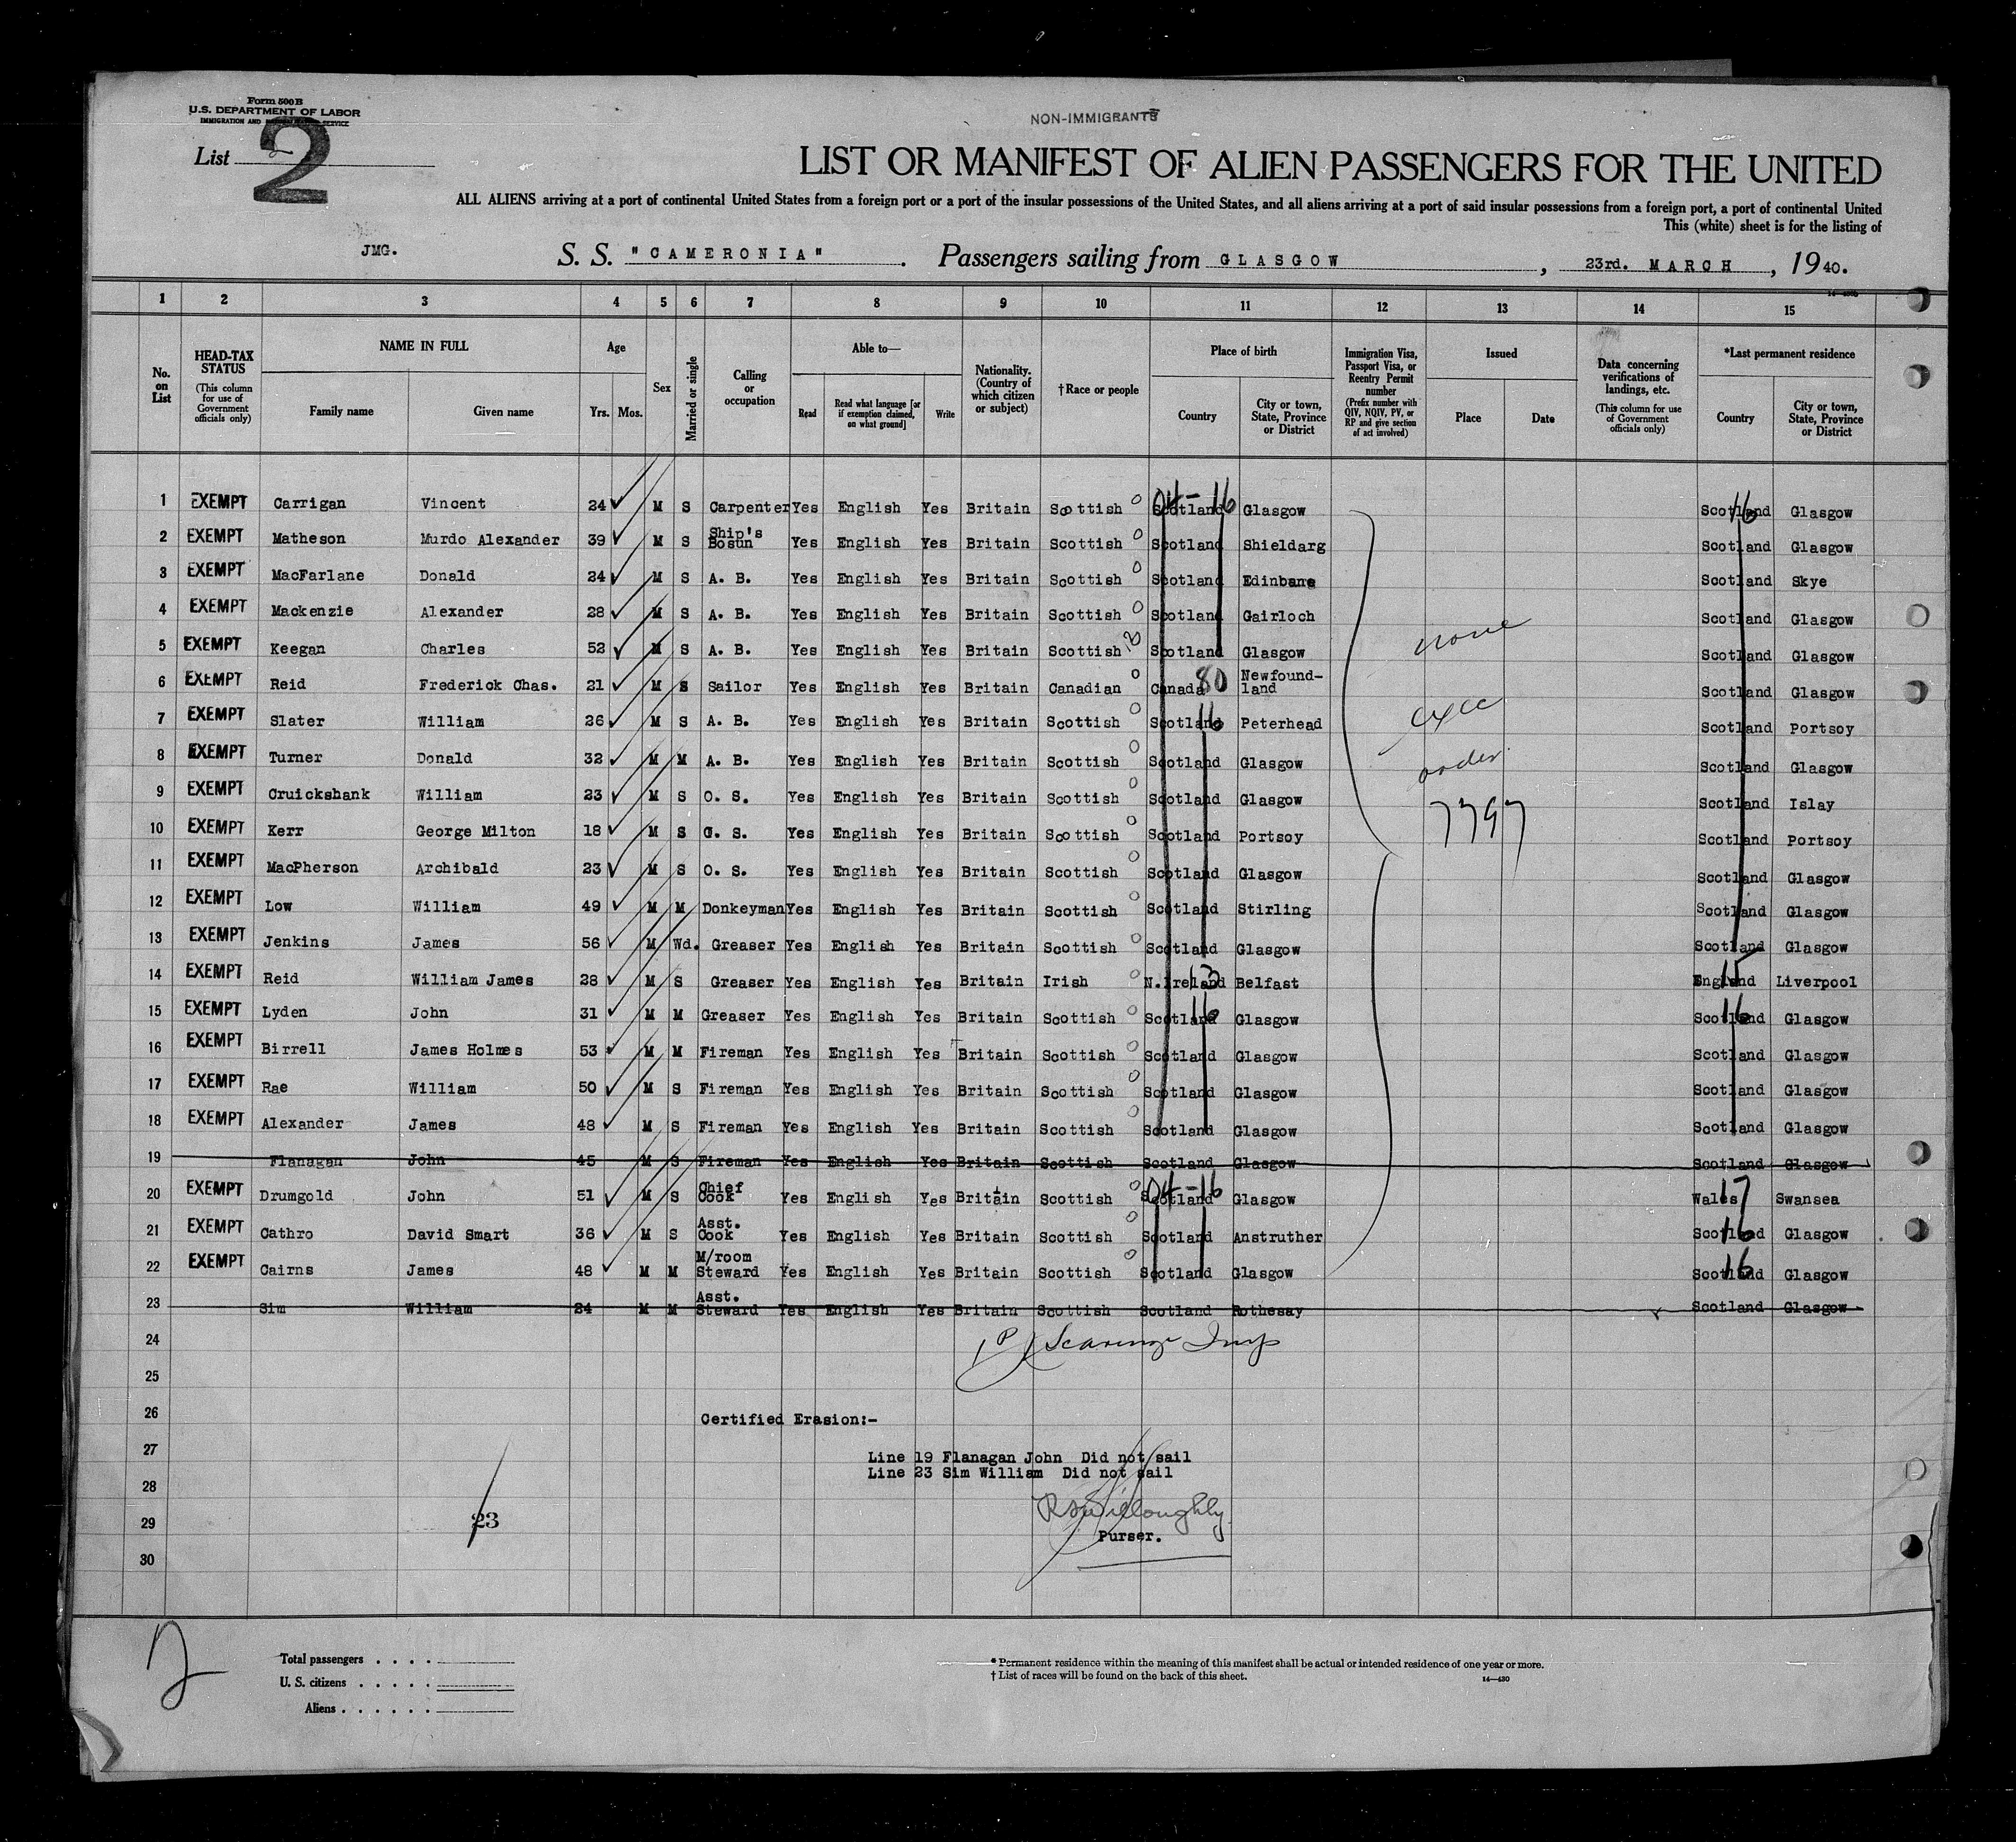 Form 500B
U.S. DEPARTMENT OF LABOR
IMMIGRATION AND SERVICE
List 2
2
NON-IMMIGRANTS
LIST OR MANIFEST OF ALIEN PASSENGERS FOR THE UNITED
ALL ALIENS arriving at a port of continental United States from a foreign port or a port of the insular possessions of the United States, and all aliens arriving at a port of said insular possessions from a foreign port, a port of continental United
This (white) sheet is for the listing of
JMG. S. S. "CAMERONIA". Passengers sailing from GLASGOW, 23rd. MARCH, 1940.
1 2 3 4 5 6 7 8 9 10 11 12 13 14 15
No. on List
HEAD-TAX STATUS (This column for use of Government officials only)
NAME IN FULL Family name Given name
Age Yrs. Mos.
Sex
Married or single
Calling or occupation
Able to— Read Read what language [or if exemption claimed, on what ground] Write
Nationality. (Country of which citizen or subject)
†Race or people
Place of birth Country City or town, State, Province or District
Immigration Visa, Passport Visa, or Reentry Permit number (Prefix number with QIV, NQIV, PV, or RP and give section of act involved)
Issued Place Date
Data concerning verifications of landings, etc. (This column for use of Government officials only)
*Last permanent residence Country City or town, State, Province or District
1 EXEMPT Carrigan Vincent 24 M S Carpenter Yes English Yes Britain Scottish Scotland 04-16 Glasgow Scotland 16 Glasgow
2 EXEMPT Matheson Murdo Alexander 39 M S Ship's Bosun Yes English Yes Britain Scottish Scotland Shieldarg Scotland Glasgow
3 EXEMPT MacFarlane Donald 24 M S A. B. Yes English Yes Britain Scottish Scotland Edinbane Scotland Skye
4 EXEMPT Mackenzie Alexander 28 M S A. B. Yes English Yes Britain Scottish Scotland Gairloch Scotland Glasgow
5 EXEMPT Keegan Charles 52 M S A. B. Yes English Yes Britain Scottish Scotland Glasgow none Scotland Glasgow
6 EXEMPT Reid Frederick Chas. 21 M S Sailor Yes English Yes Britain Canadian Canada 80 Newfound-land Scotland Glasgow
7 EXEMPT Slater William 26 M S A. B. Yes English Yes Britain Scottish Scotland 16 Peterhead exec Scotland Portsoy
8 EXEMPT Turner Donald 32 M M A. B. Yes English Yes Britain Scottish Scotland Glasgow order Scotland Glasgow
9 EXEMPT Cruickshank William 23 M S O. S. Yes English Yes Britain Scottish Scotland Glasgow 7797 Scotland Islay
10 EXEMPT Kerr George Milton 18 M S O. S. Yes English Yes Britain Scottish Scotland Portsoy Scotland Portsoy
11 EXEMPT MacPherson Archibald 23 M S O. S. Yes English Yes Britain Scottish Scotland Glasgow Scotland Glasgow
12 EXEMPT Low William 49 M M Donkeyman Yes English Yes Britain Scottish Scotland Stirling Scotland Glasgow
13 EXEMPT Jenkins James 56 M Wd. Greaser Yes English Yes Britain Scottish Scotland Glasgow Scotland Glasgow
14 EXEMPT Reid William James 28 M S Greaser Yes English Yes Britain Irish N.Ireland 13 Belfast England 15 Liverpool
15 EXEMPT Lyden John 31 M M Greaser Yes English Yes Britain Scottish Scotland 16 Glasgow Scotland 16 Glasgow
16 EXEMPT Birrell James Holmes 53 M M Fireman Yes English Yes Britain Scottish Scotland Glasgow Scotland Glasgow
17 EXEMPT Rae William 50 M S Fireman Yes English Yes Britain Scottish Scotland Glasgow Scotland Glasgow
18 EXEMPT Alexander James 48 M S Fireman Yes English Yes Britain Scottish Scotland Glasgow Scotland Glasgow
19 Flanagan John 45 M S Fireman Yes English Yes Britain Scottish Scotland Glasgow Scotland Glasgow
20 EXEMPT Drumgold John 51 M S Chief Cook Yes English Yes Britain Scottish Scotland 04-16 Glasgow Wales 17 Swansea
21 EXEMPT Cathro David Smart 36 M S Asst. Cook Yes English Yes Britain Scottish Scotland Anstruther Scotland 16 Glasgow
22 EXEMPT Cairns James 48 M M M/room Steward Yes English Yes Britain Scottish Scotland Glasgow Scotland 16 Glasgow
23 Sim William 24 M M Asst. Steward Yes English Yes Britain Scottish Scotland Rothesay Scotland Glasgow
24
25
26 Certified Erasion:-
27 Line 19 Flanagan John Did not sail
Line 23 Sim William Did not sail
28
29 23 Willoughby
Purser.
30
2
Total passengers . . . .
U. S. citizens . . . . .
Aliens . . . . . .
* Permanent residence within the meaning of this manifest shall be actual or intended residence of one year or more.
† List of races will be found on the back of this sheet.
14—430